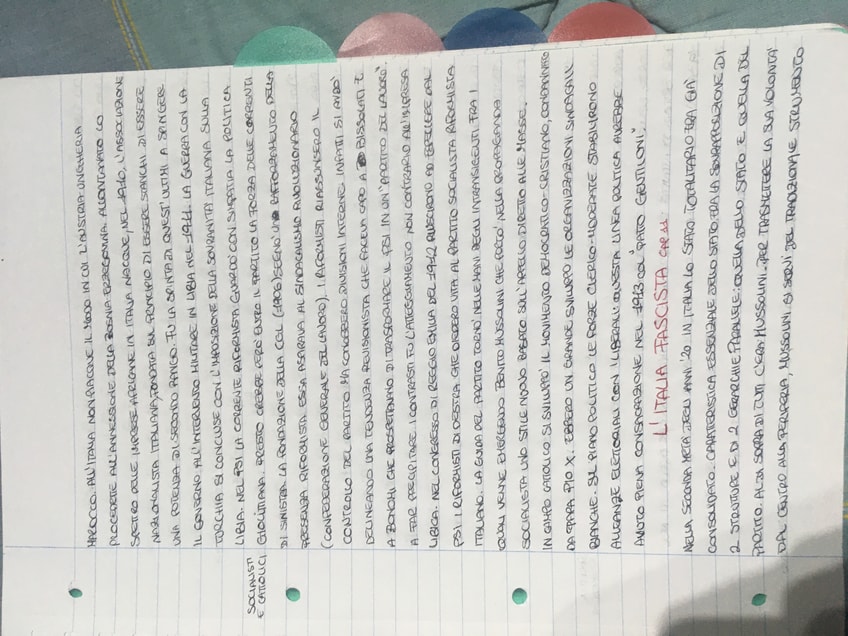 MAROCCO. ALL'ITALIA NON PIACQUE IL MODO IN CUI L'AUSTRIA-UNGHERIA
PROCEDETE ALL'ANNESSIONE DELLA BOSNIA ERZEGOVINA. ALLONTANATO LO
SPETTRO DELLE IMPRESE AFRICANE IN ITALIA NACQUE, NEL 1910, L'ASSOCIAZIONE
NAZIONALISTA ITALIANA, FONDATA SUL PRINCIPIO DI ESSERE STANCHI DI ESSERE
UNA POTENZA DI SECONDO RANGO. FU LA SPINTA DI QUEST'ULTIMI A SPINGERE
IL GOVERNO ALL'INTERVENTO MILITARE IN LIBIA NEL 1911. LA GUERRA CON LA
TURCHIA SI CONCLUSE CON L'IMPOSIZIONE DELLA SOVRANITA' ITALIANA SULLA
LIBIA. NEL PSI LA CORRENTE RIFORMISTA GUARDO' CON SIMPATIA LA POLITICA
SOCIALISTI E CATTOLICI
GIOLITTIANA. PRESTO CREBBE PERO' ENTRO IL PARTITO LA FORZA DELLE CORRENTI
DI SINISTRA. LA FONDAZIONE DELLA CGL (1906) SEGNO' UN RAFFORZAMENTO DELLA
PRESENZA RIFORMISTA ESSA ASPRAVA AL SINDACALISMO RIVOLUZIONARIO
(CONFEDERAZIONE GENERALE DEL LAVORO). I RIFORMISTI RIASSUNSERO IL
CONTROLLO DEL PARTITO MA CONOBBERO DIVISIONI INTERNE. INFATTI SI ANDO'
DELINEANDO UNA TENDENZA REVISIONISTA CHE FACEVA CAPO A BISSOLATI E
A BONOMI CHE PROSPETTAVANO DI TRASFORMARE IL PSI IN UN "PARTITO DEL LAVORO".
A FAR PRECIPITARE I CONTRASTI FU L'ATTEGGIAMENTO NON CONTRARIO ALL'IMPRESA
LIBICA. NEL CONGRESSO DI REGGIO EMILIA DEL 1912 RIUSCIRONO AD ESPELLERE DAL
PSI I RIFORMISTI DI DESTRA CHE DIEDERO VITA AL PARTITO SOCIALISTA RIFORMISTA
ITALIANO. LA GUIDA DEL PARTITO TORNO' NELLE MANI DEGLI INTRANSIGENTI FRA I
QUALI VENNE EMERGENDO BENITO MUSSOLINI CHE PORTO' NELLA PROPAGANDA
SOCIALISTA UNO STILE NUOVO BASATO SULL'APPELLO DIRETTO ALLE MASSE.
IN CAMPO CATTOLICO SI SVILUPPO' IL MOVIMENTO DEMOCRATICO-CRISTIANO, CONDANNATO
DA PAPA PIO X. EBBERO UN GRANDE SVILUPPO LE ORGANIZZAZIONI SINDACALI
BIANCHE. SUL PIANO POLITICO LE FORZE CLERICO-MODERATE STABILIRONO
ALLEANZE ELETTORALI CON I LIBERALI. QUESTA LINEA POLITICA AVREBBE
AVUTO PIENA CONSACRAZIONE NEL 1913 COL "PATTO GENTILONI".
L'ITALIA FASCISTA CAP 11
NELLA SECONDA META' DEGLI ANNI '20 IN ITALIA LO STATO TOTALITARIO ERA GIA'
CONSOLIDATO. CARATTERISTICA ESSENZIALE DELLO STATO ERA LA SOVRAPPOSIZIONE DI
2 STRUTTURE E DI 2 GERARCHIE PARALLELE: QUELLA DELLO STATO E QUELLA DEL
PARTITO. AL DI SOPRA DI TUTTI C'ERA MUSSOLINI. PER TRASMETTERE LA SUA VOLONTA'
DAL CENTRO ALLA PERIFERIA, MUSSOLINI SI SERVI' DEL TRADIZIONALE STRUMENTO